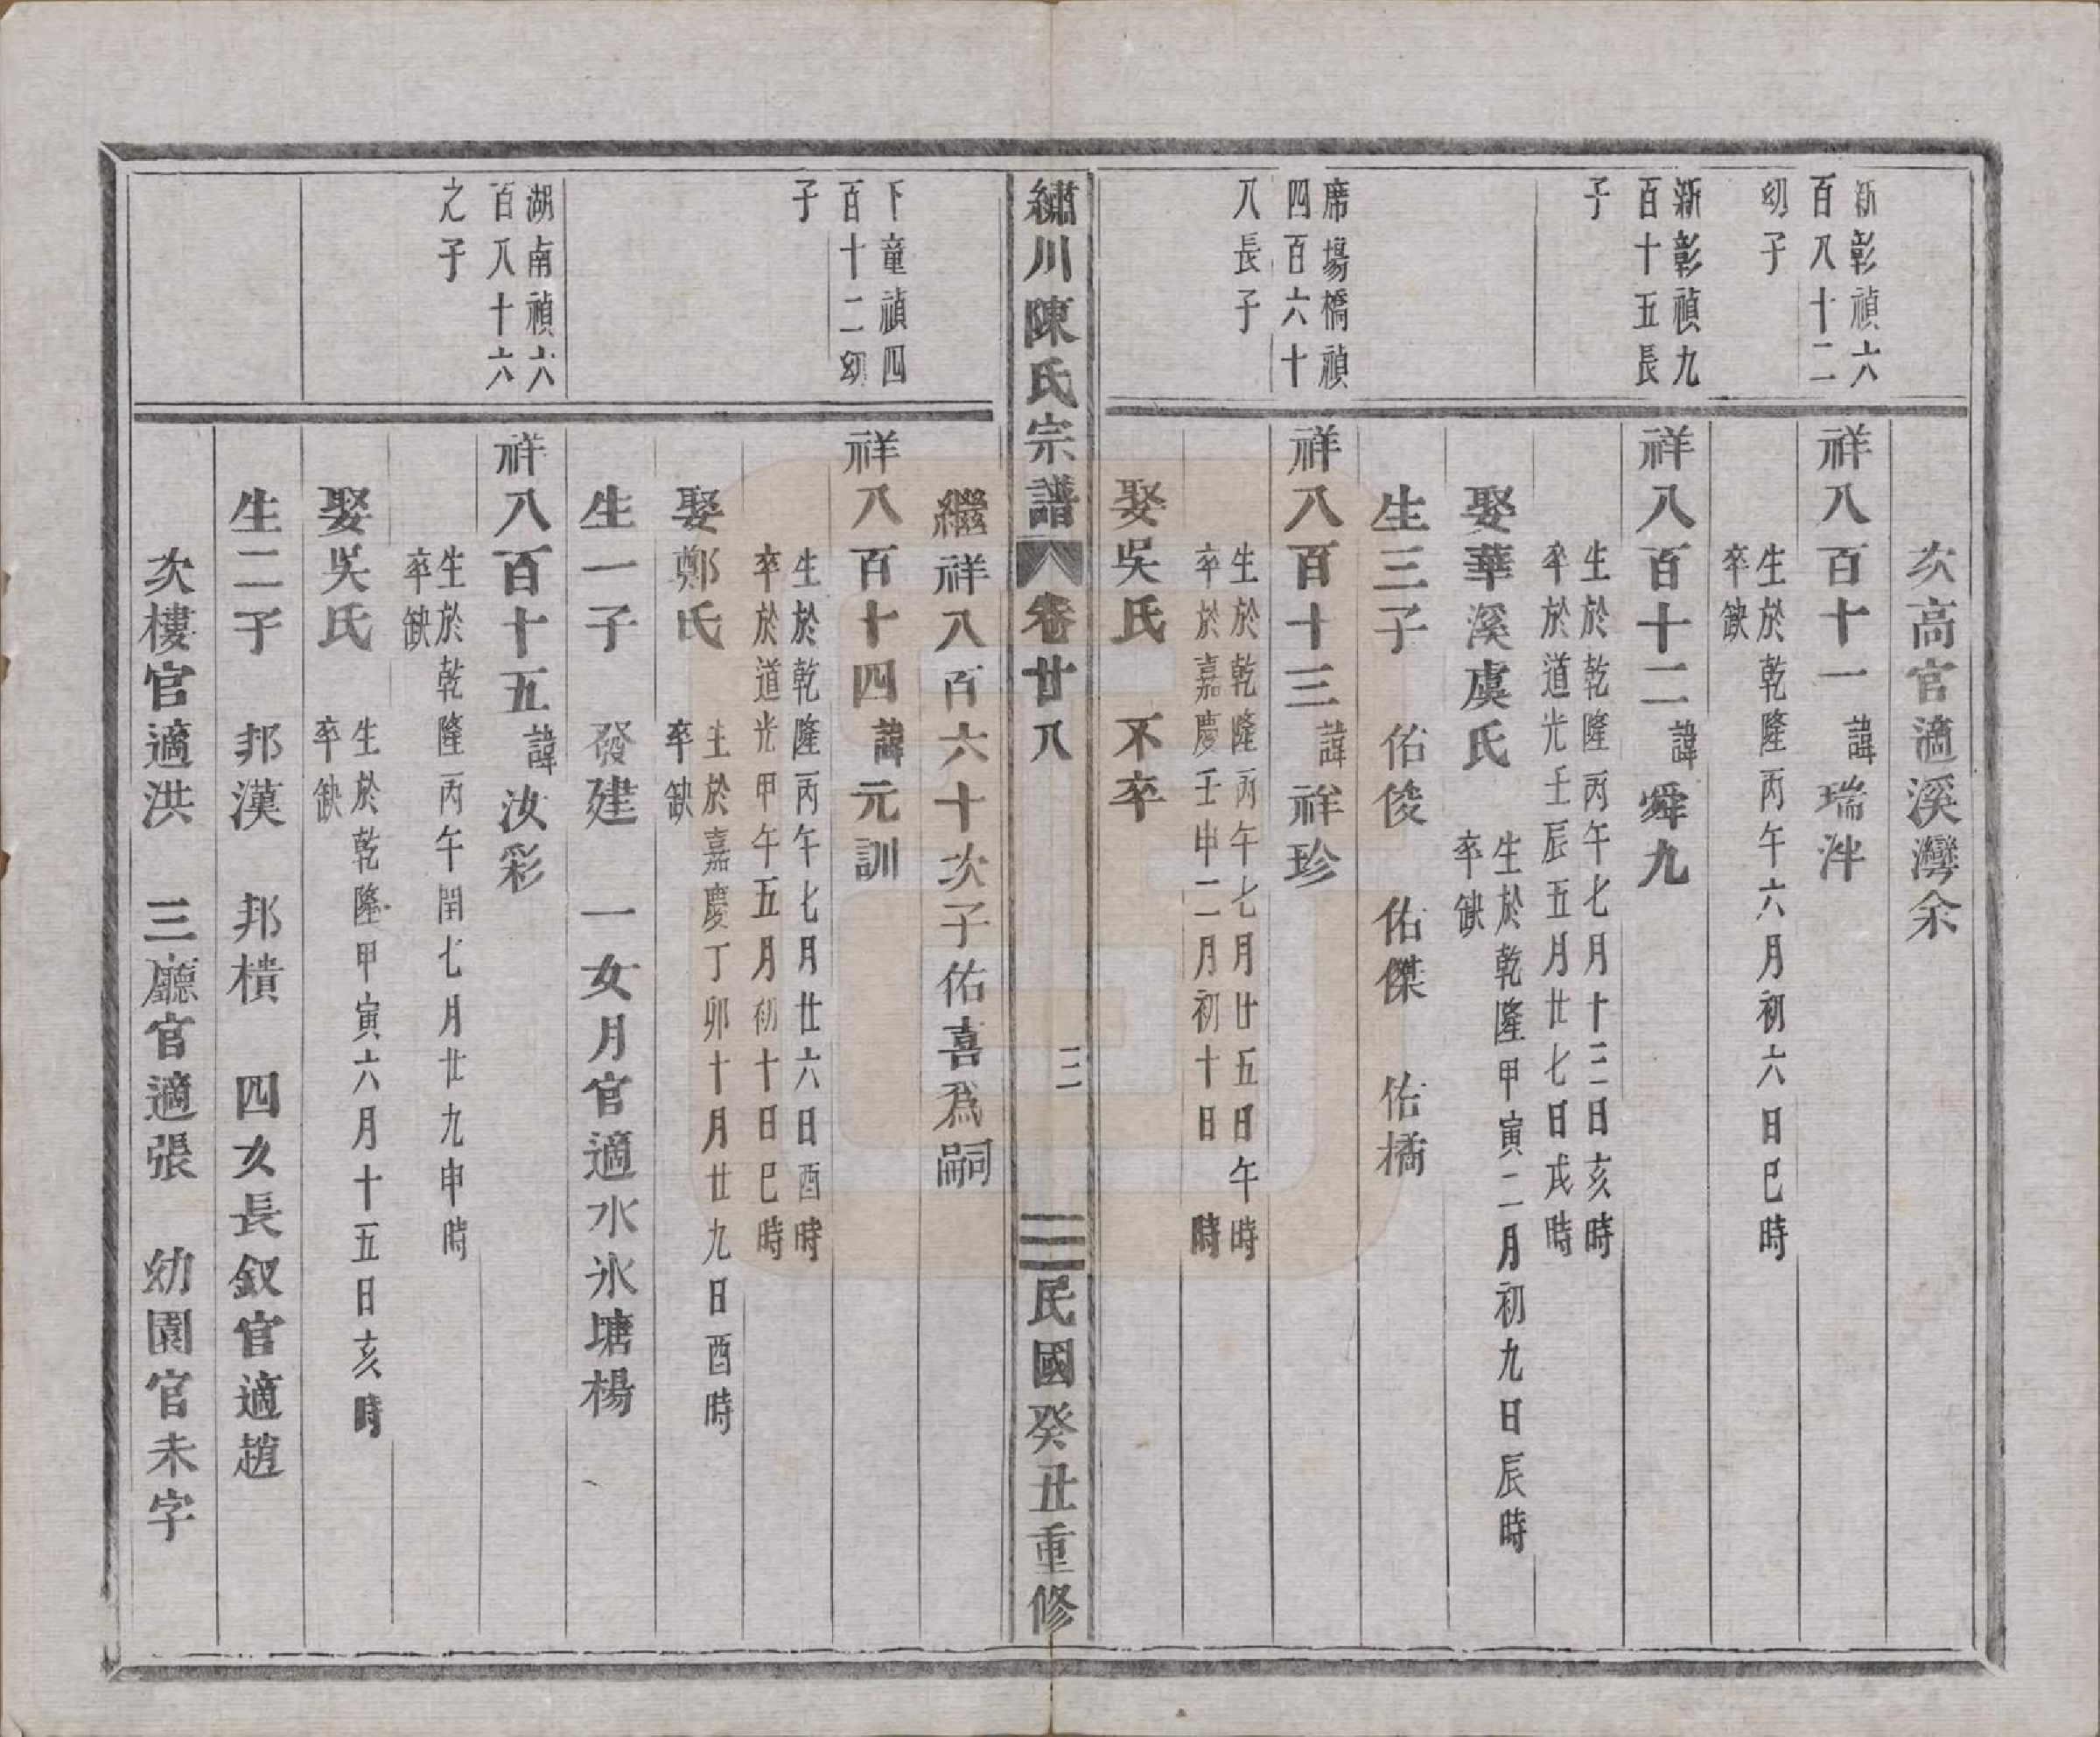 次高官適溪灣余
新彰禎六
百八十二
幼子
祥八百十一 諱瑞泮
生於乾隆丙午六月初六日巳時
卒缺
新彰禎九
百十五長
子
祥八百十二 諱舜九
生於乾隆丙午七月十三日亥時
卒於道光壬辰五月廿七日戌時
娶華溪虞氏
生於乾隆甲寅二月初九日辰時
卒缺
生三子 佑俊 佑傑 佑橘
席場橋禎
四百六十
八長子
祥八百十三 諱祥珍
生於乾隆丙午七月廿五日午時
卒於嘉慶壬申二月初十日 時
娶吳氏 不卒
繡川陳氏宗譜 卷廿八 三 民國癸丑重修
繼祥八百六十次子佑喜爲嗣
下童禎四
百十二幼
子
祥八百十四 諱元訓
生於乾隆丙午七月廿六日酉時
卒於道光甲午五月初十日巳時
娶鄭氏
生於嘉慶丁卯十月廿九日酉時
卒缺
生一子 發建 一女月官適水氷塘楊
湖南禎六
百八十六
之子
祥八百十五 諱汝彩
生於乾隆丙午閏七月廿九申時
卒缺
娶吳氏
生於乾隆甲寅六月十五日亥時
卒缺
生二子 邦漢 邦横 四女長釵官適趙
次樓官適洪 三廳官適張 幼園官未字